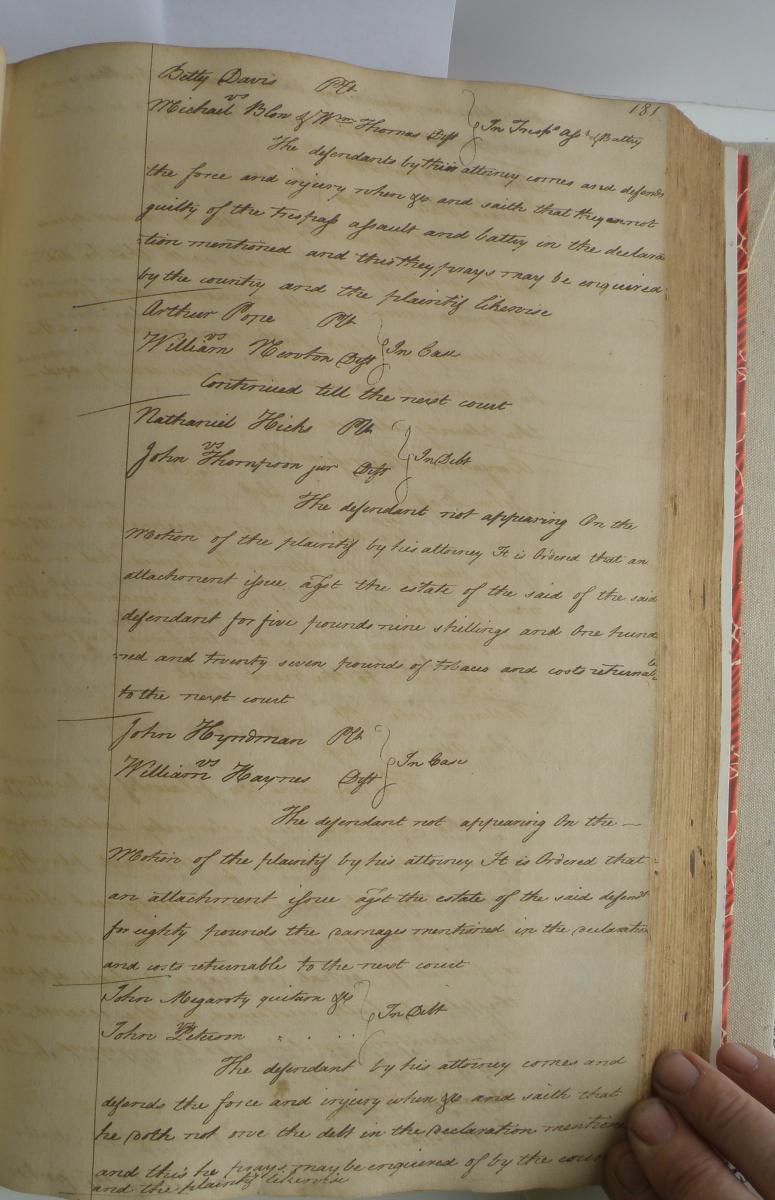 181
Betty Davis Plt
vs
Michael Blow & Wm Thomas Deft } In Tresps Asst & Battry
The defendants by their attorney comes and defends
the force and injury when &c and saith that they are not
guilty of the trespass assault and battry in the declara
tion mentioned and this they prays may be enquired
by the country and the plaintif likewise
Arthur Pope Plt
vs
William Newton Deft } In Case
Continued till the next court
Nathaniel Hicks Plt
vs
John Thompson jur Deft } In Debt
The defendant not appearing On the
Motion of the plaintif by his attorney It is Ordered that an
attachment issue agst the estate of the said of the said
defendant for five pounds nine shillings and One hund
red and twenty seven pounds of tobaco and costs returnable
to the next court
John Hyndman Plt
vs
William Haynes Deft } In Case
The defendant not appearing On the
Motion of the plaintif by his attorney It is Ordered that
an attachment issue agst the estate of the said defendt
for eighty pounds the damages mentioned in the declaration
and costs returnable to the next court
John Megaroty quitam &c
vs
John Peterson } In Debt
The defendant by his attorney comes and
defends the force and injury when &c and saith that
he doth not owe the debt in the declaration mentione
and this he prays may be enquired of by the coun
and the plaintif likewise